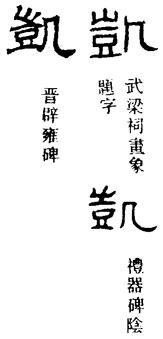 凱
武梁祠畫象
題字
凱
禮器碑陰
凱
晉辟雍碑